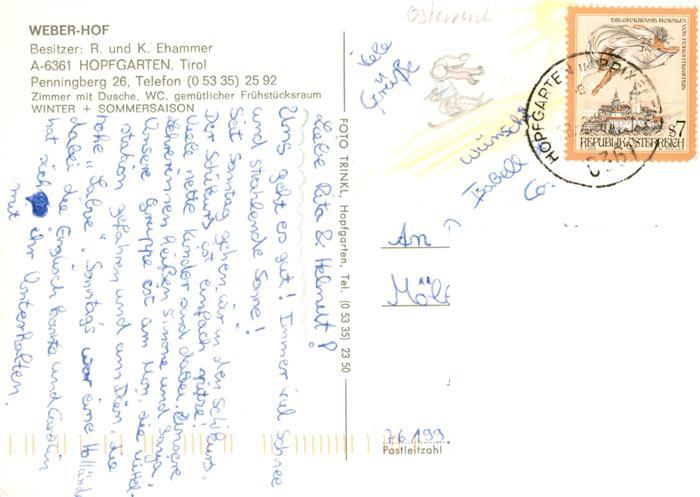 WEBER-HOF
Besitzer: R. und K. Ehammer
A-6361 HOPFGARTEN, Tirol
Penningberg 26, Telefon (0 53 35) 25 92
Zimmer mit Dusche, WC, gemütlicher Frühstücksraum
WINTER + SOMMERSAISON
Liebe Rita & Helmut!
Uns geht es gut! Immer viel Schnee
und strahlende Sonne!
Seit Sonntag gehen wir in den Schikurs.
Der Schikurs ist einfach spitze!
Viele nette Kinder sind dabei. Unsere
Lehrerinnen heißen Simone und Sanja.
Unsere Gruppe ist am Mon. die Mittel-
station gefahren und am Dien. die
Hohe "Salve". Sonntags war eine Holländ
dabei die Englisch konnte und Carolin
hat sich mit ihr Unterhalten.
FOTO TRINKL, Hopfgarten, Tel. (0 53 35) 23 50
Österreich
Viele
Grüße
wünscht
Isabell
Co.
DIE GRAUSAME ROSALIA
VON FORCHTENSTEIN
S7
REPUBLIK ÖSTERREICH
HOPFGARTEN BRIX
6361
An
Möl
76 199
Postleitzahl